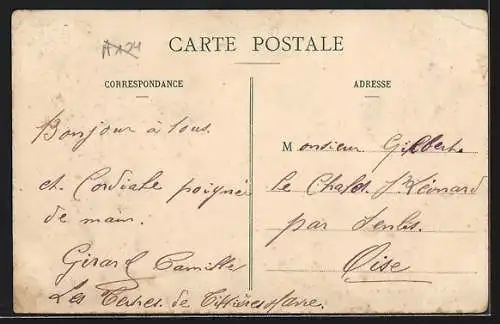 A124
CARTE POSTALE
CORRESPONDANCE
ADRESSE
Bonjour à tous
et Cordiale poignée
de main.
Girard Camille
Les de
Monsieur Gilbert
Le St Léonard
par Senlis
Oise